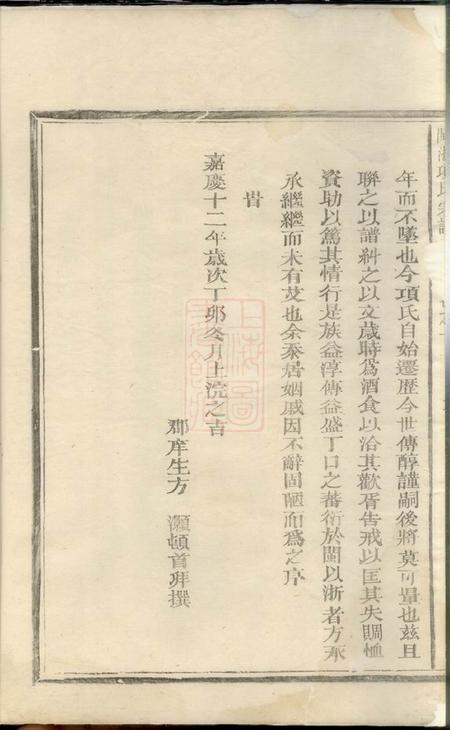 年而不墜也今項氏自始遷歷今世傳醇謹嗣後將莫可量也茲且
聯之以譜糾之以文歲時爲酒食以洽其歡胥告戒以匡其失賙恤
資助以篤其情行是族益淳傳益盛丁口之蕃衍於閩以浙者方永
承繼繼而未有艾也余忝居姻戚因不辭固陋而爲之序
旹
嘉慶十二年歲次丁卯冬月上浣之吉
郡庠生方 灝頓首拜撰
上海圖